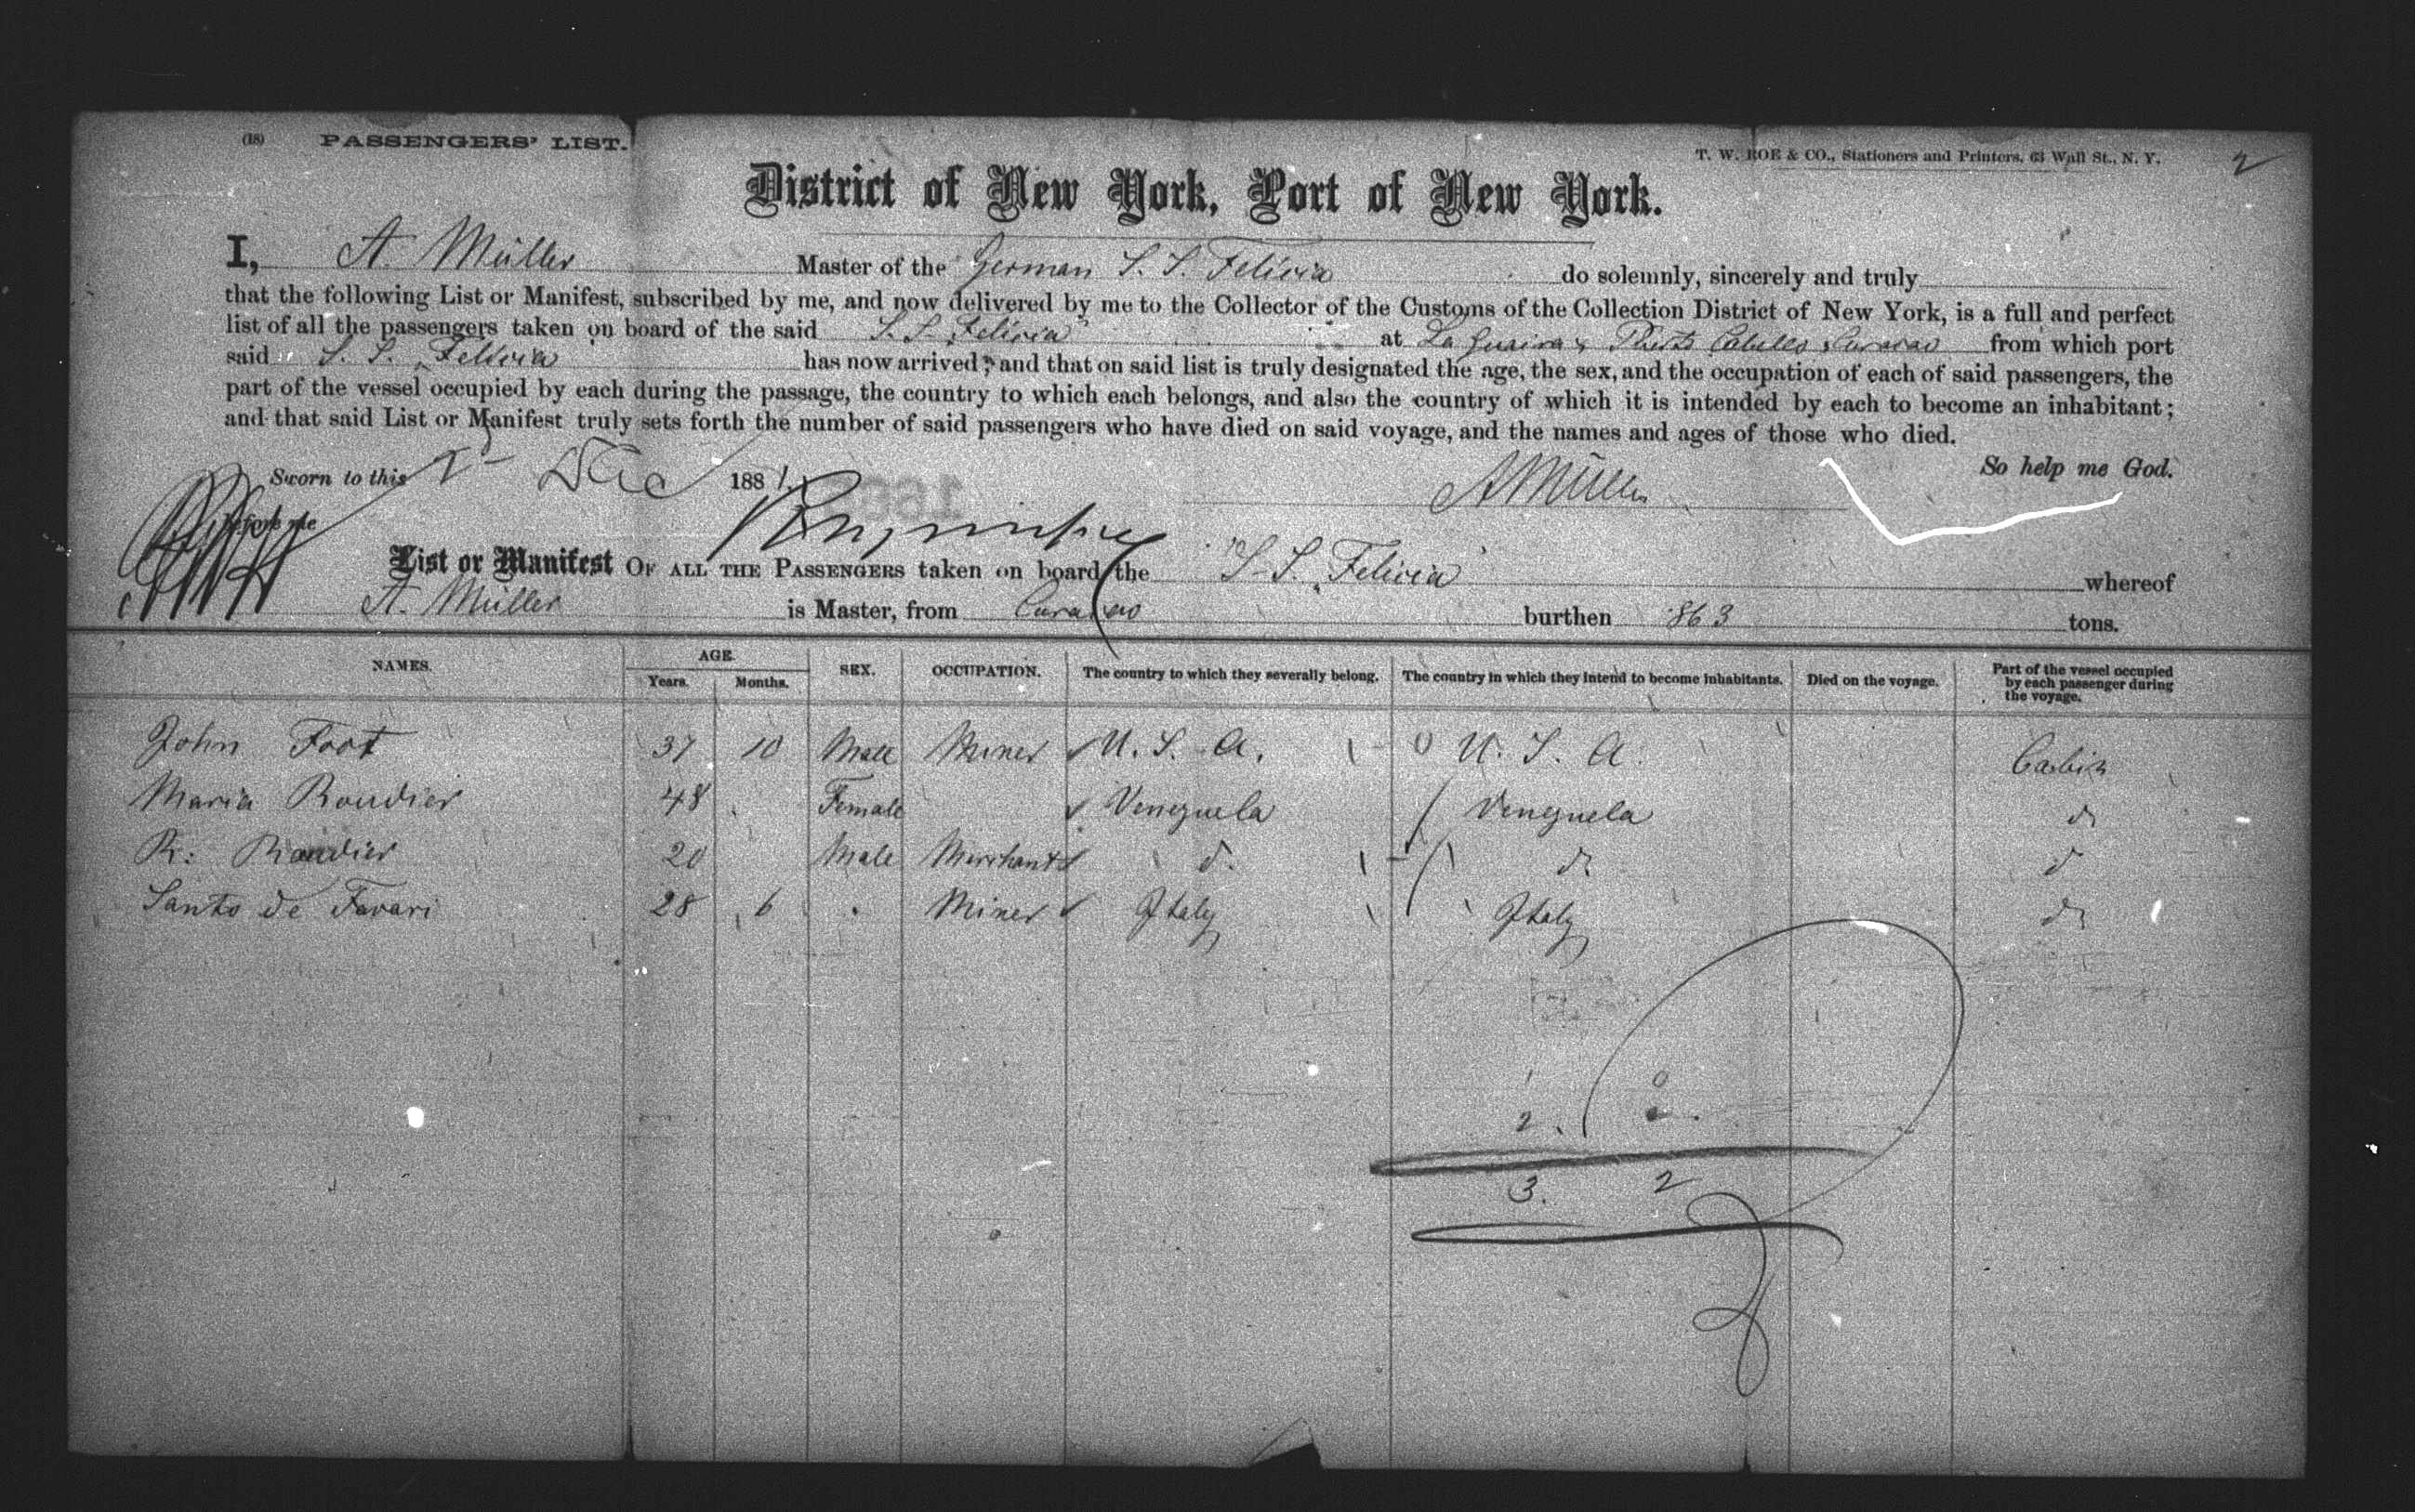 (18) PASSENGERS' LIST.
T. W. ROE & CO., Stationers and Printers, 63 Wall St., N. Y.
2
District of New York, Port of New York.
I, A. Müller Master of the German S. S. Felicia do solemnly, sincerely and truly
that the following List or Manifest, subscribed by me, and now delivered by me to the Collector of the Customs of the Collection District of New York, is a full and perfect
list of all the passengers taken on board of the said S. S. "Felicia" at La Guaira & Puerto Cabello & Curacao from which port
said S. S. "Felicia has now arrived; and that on said list is truly designated the age, the sex, and the occupation of each of said passengers, the
part of the vessel occupied by each during the passage, the country to which each belongs, and also the country of which it is intended by each to become an inhabitant;
and that said List or Manifest truly sets forth the number of said passengers who have died on said voyage, and the names and ages of those who died.
So help me God.
Sworn to this Dec 1881.
A Müller
before me
List or Manifest OF ALL THE PASSENGERS taken on board the S. S. Felicia whereof
A. Müller is Master, from Curacao burthen 863 tons.
NAMES. AGE. Years. Months. SEX. OCCUPATION. The country to which they severally belong. The country in which they intend to become inhabitants. Died on the voyage. Part of the vessel occupied by each passenger during the voyage.
John Foot 37 10 Male Miner U. S. A. 0 U. S. A. Cabin
Maria Roudier 48 Female Venezuela Venezuela do
R. Roudier 20 Male Merchant do do do
Santo de Favari 28 6 Miner Italy Italy do
1 0
2
3. 2